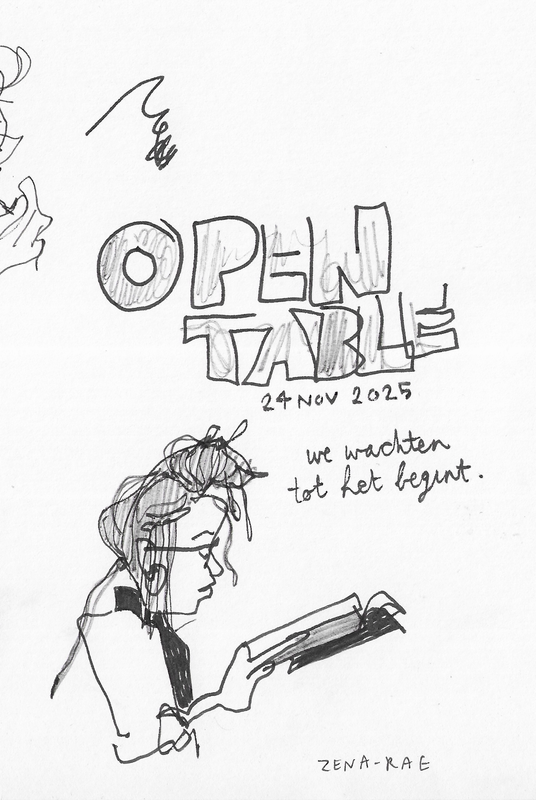 OPEN
TABLE
24 NOV 2025
we wachten
tot het begint.
ZENA-RAE